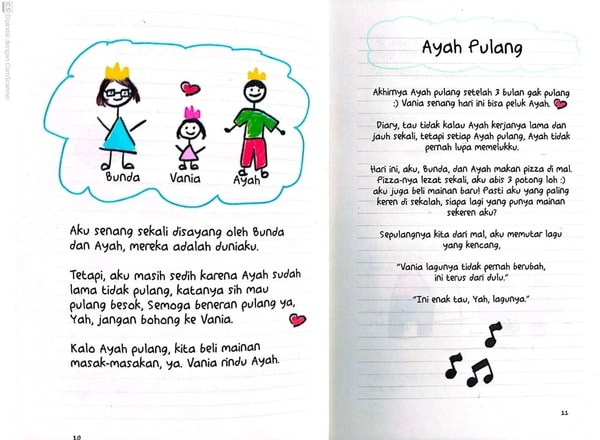 CS Dipindai dengan CamScanner
Bunda Vania Ayah
Aku senang sekali disayang oleh Bunda
dan Ayah, mereka adalah duniaku.
Tetapi, aku masih sedih karena Ayah sudah
lama tidak pulang, katanya sih mau
pulang besok, Semoga beneran pulang ya,
Yah, jangan bohong ke Vania.
Kalo Ayah pulang, kita beli mainan
masak-masakan, ya. Vania rindu Ayah.
10
Ayah Pulang
Akhirnya Ayah pulang setelah 3 bulan gak pulang
:) Vania senang hari ini bisa peluk Ayah.
Diary, tau tidak kalau Ayah kerjanya lama dan
jauh sekali, tetapi setiap Ayah pulang, Ayah tidak
pernah lupa memelukku.
Hari ini, aku, Bunda, dan Ayah makan pizza di mal.
Pizza-nya lezat sekali, aku abis 3 potong loh :)
aku juga beli mainan baru! Pasti aku yang paling
keren di sekolah, siapa lagi yang punya mainan
sekeren aku?
Sepulangnya kita dari mal, aku memutar lagu
yang kencang,
"Vania lagunya tidak pernah berubah,
ini terus dari dulu."
"Ini enak tau, Yah, lagunya."
11